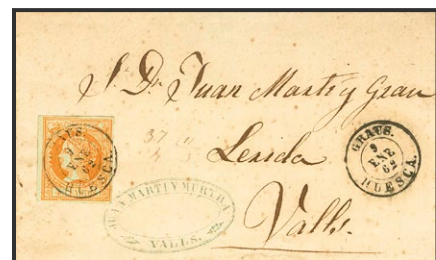 S. Dn. Juan Marti y Grau
Lerida
Valls.
GRAUS.
9
ENE
62
HUESCA.
GRAUS.
9
ENE
62
HUESCA.
JUAN MARTI Y MURTRA
VALLS.
37